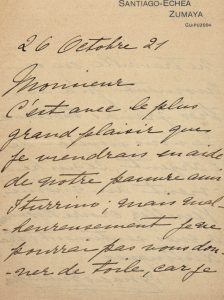 SANTIAGO-ECHEA
ZUMAYA
GUIPUZCOA
26 Octobre 21
Monsieur
C'est avec le plus
grand plaisir que
je viendrais en aide
de notre pauvre ami
Iturrino; mais mal-
-heureusement je ne
pourrai pas vous don-
-ner de toile, car je